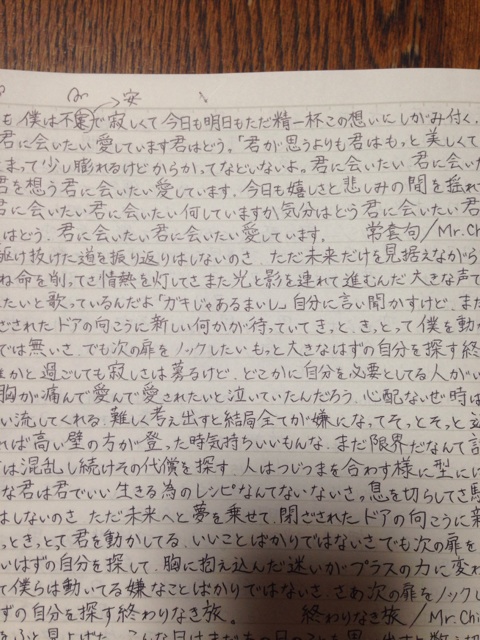 安
も 僕は不定で寂しくて今日も明日もただ精一杯この想いにしがみ付く.
君に会いたい愛しています君はどう。「君が思うよりも君はもっと美しくて
まって少し膨れるけどからかってなどいないよ。君に会いたい 君に会いた
君を想う君に会いたい愛しています. 今日も嬉しさと悲しみの間を揺れ
君に会いたい君に会いたい何していますか気分はどう君に会いたい君
はどう. 君に会いたい君に会いたい愛しています. 常套句/Mr.Ch
駆け抜けた道を振り返りはしないのさ. ただ未来だけを見据えながら
ね命を削ってさ情熱を灯してさまた光と影を連れて進むんだ大きな声で
たいと歌っているんだよ「ガキじゃあるまいし」自分に言い聞かすけど. また
ざされたドアの向こうに新しい何かが待っていてきっと、きっとって僕を動か
では無いさ. でも次の扉をノックしたいもっと大きなはずの自分を探す終
誰かと過ごしても寂しさは募るけど. どこかに自分を必要としてる人がい
胸が痛んで愛んで愛されたいと泣いていたんだろう. 心配ないぜ時は
い流してくれる. 難しく考え出すと結局全てが嫌になってそっとそっと
れば高い壁の方が登った時気持ちいいもんな. まだ限界だなんて認
は混乱し続けその代償を探す. 人はつじつまを合わす様に型に
な君は君でいい生きる為のレシピなんてないないさ。息を切らしてさ駆
はしないのさ ただ未来へと夢を乗せて. 閉ざされたドアの向こうに新
っときっとって君を動かしてる. いいことばかりではないさでも次の扉を
いはずの自分を探して. 胸に抱え込んだ迷いがプラスの力に変わ
て僕らは動いてる嫌なことばかりではないさ. さあ次の扉をノックし
ずの自分を探す終わりなき旅。 終わりなき旅/Mr.Ch